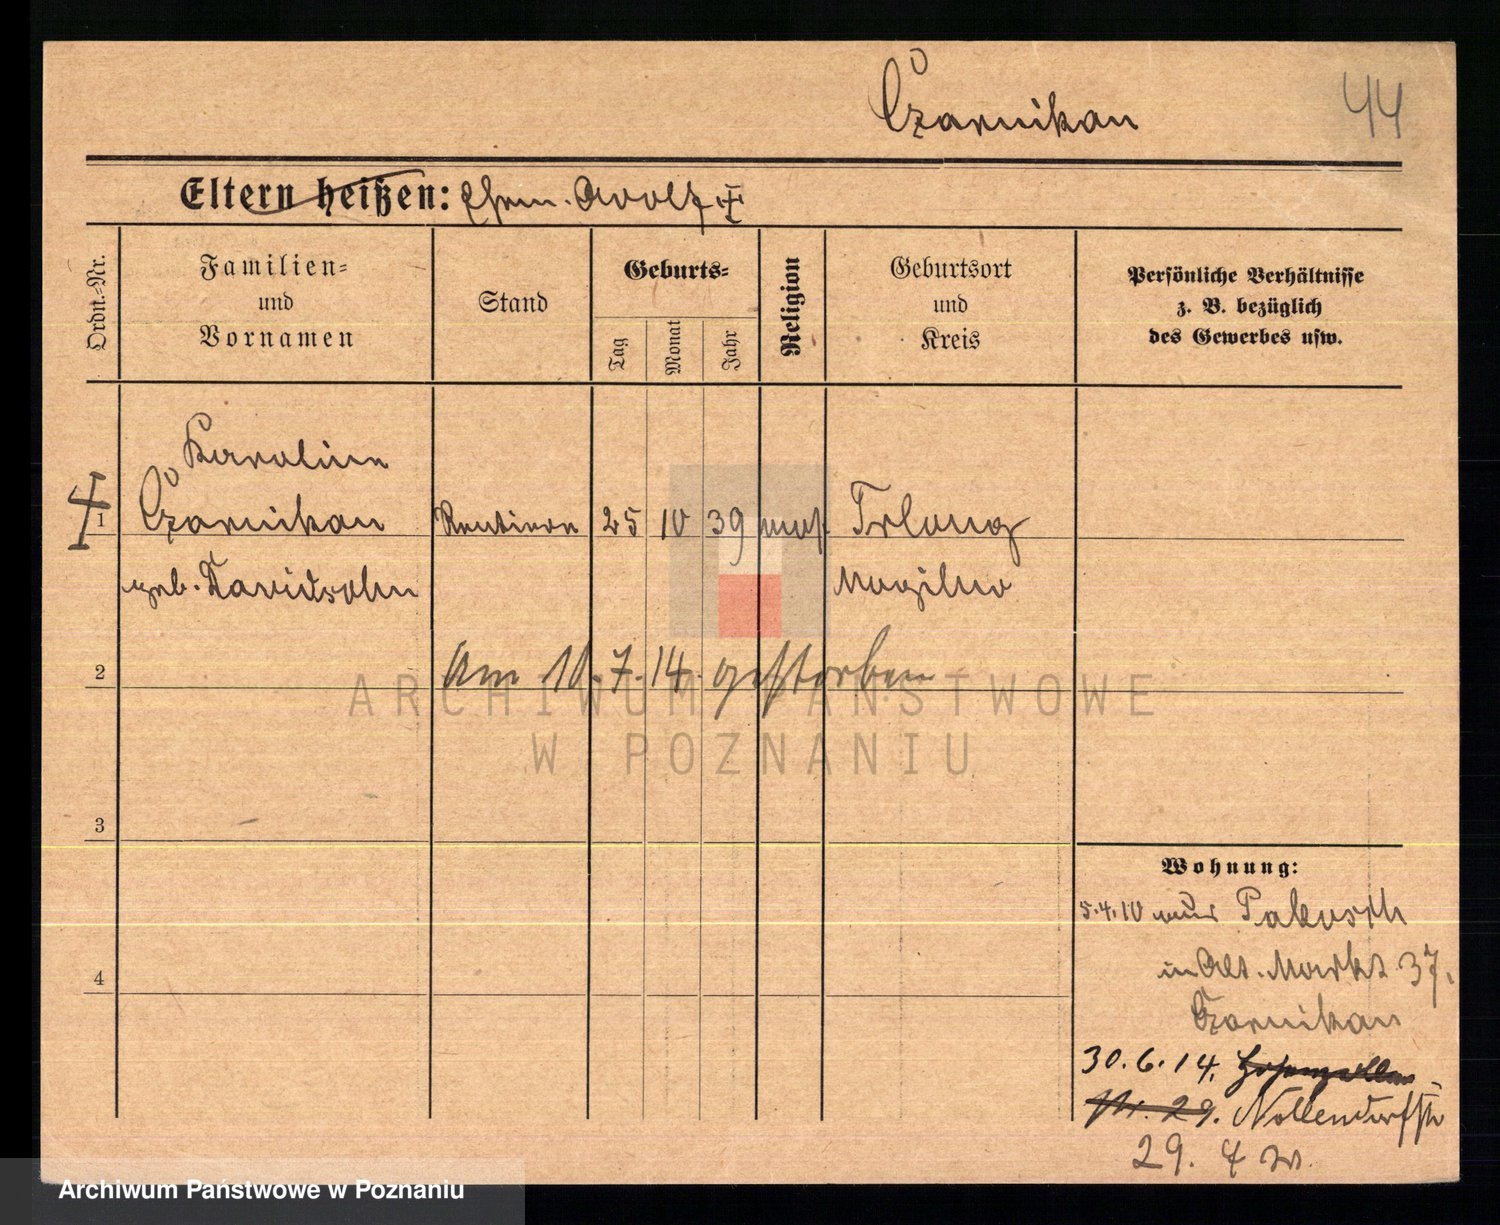 Czarnikau
44
Eltern heißen: Ehem. Adolf ‡
Ordn.-Nr.
Familien-
und
Vornamen
Stand
Geburts-
Tag
Monat
Jahr
Religion
Geburtsort
und
Kreis
Persönliche Verhältnisse
z. B. bezüglich
des Gewerbes usw.
Karoline
1 Czarnikau Rentiere 25 10 39 mos. Trlong
geb. Davidsohn Mogilno
2 Am 10.7.14. gestorben
ARCHIWUM PAŃSTWOWE
W POZNANIU
3
Wohnung:
5.4.10 aus Pakosch
in Alt. Markt 37.
4
Czarnikau
30.6.14. Hohenzollern-
Str. 29. Nollendorfstr
29.
Archiwum Państwowe w Poznaniu